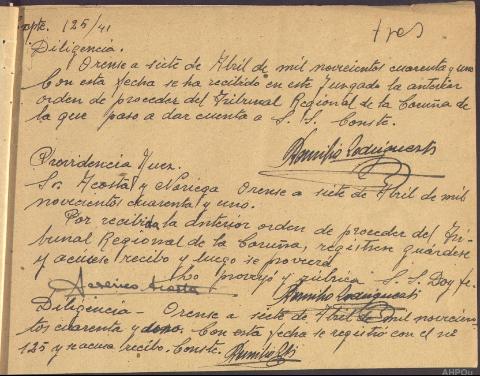 Expte. 125/41
tres
Diligencia.
Orense a siete de Abril de mil novecientos cuarenta y uno
Con esta fecha se ha recibido en este Juzgado la anterior
orden de proceder del Tribunal Regional de la Coruña de
la que paso a dar cuenta a S. S. Conste.
Providencia Juez.
Sr. Acosta y Noriega Orense a siete de Abril de mil
novecientos cuarenta y uno.
Por recibida la anterior orden de proceder del Tri-
bunal Regional de la Coruña, regístrese guárdese
y acúsese recibo y luego se proveerá
Lo proveyó y rúbrica S. S. Doy fe.
Acosta
Diligencia - Orense a siete de Abril de mil novecien-
tos cuarenta y uno. Con esta fecha se registró con el nº
125 y se acusa recibo. Conste.
AHPOu